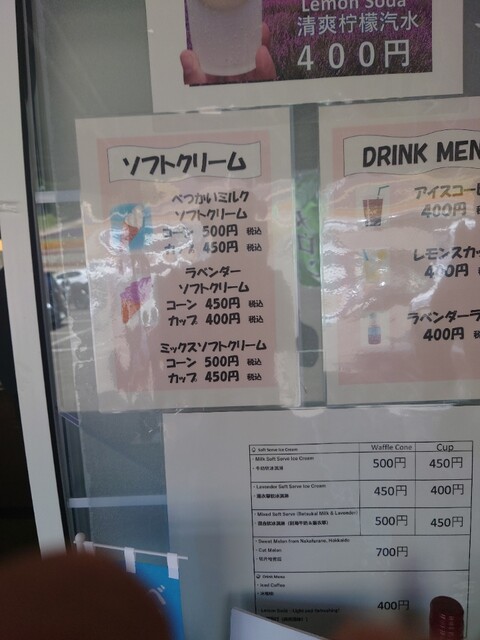 Lemon Soda
清爽柠檬汽水
400円
ソフトクリーム
べつかいミルク
ソフトクリーム
コーン 500円 税込
カップ 450円 税込
ラベンダー
ソフトクリーム
コーン 450円 税込
カップ 400円 税込
ミックスソフトクリーム
コーン 500円 税込
カップ 450円 税込
DRINK MEN
アイスコー
400円
レモンスカッ
400円
ラベンダーラ
400円
Soft Serve Ice Cream Waffle Cone Cup
・Milk Soft Serve Ice Cream
500円 450円
・Lavender Soft Serve Ice Cream
450円 400円
・Mixed Soft Serve (Betsukai Milk & Lavender)
500円 450円
・Sweet Melon from Nakafurano, Hokkaido
・Cut Melon
700円
Drink Menu
・Iced Coffee
400円